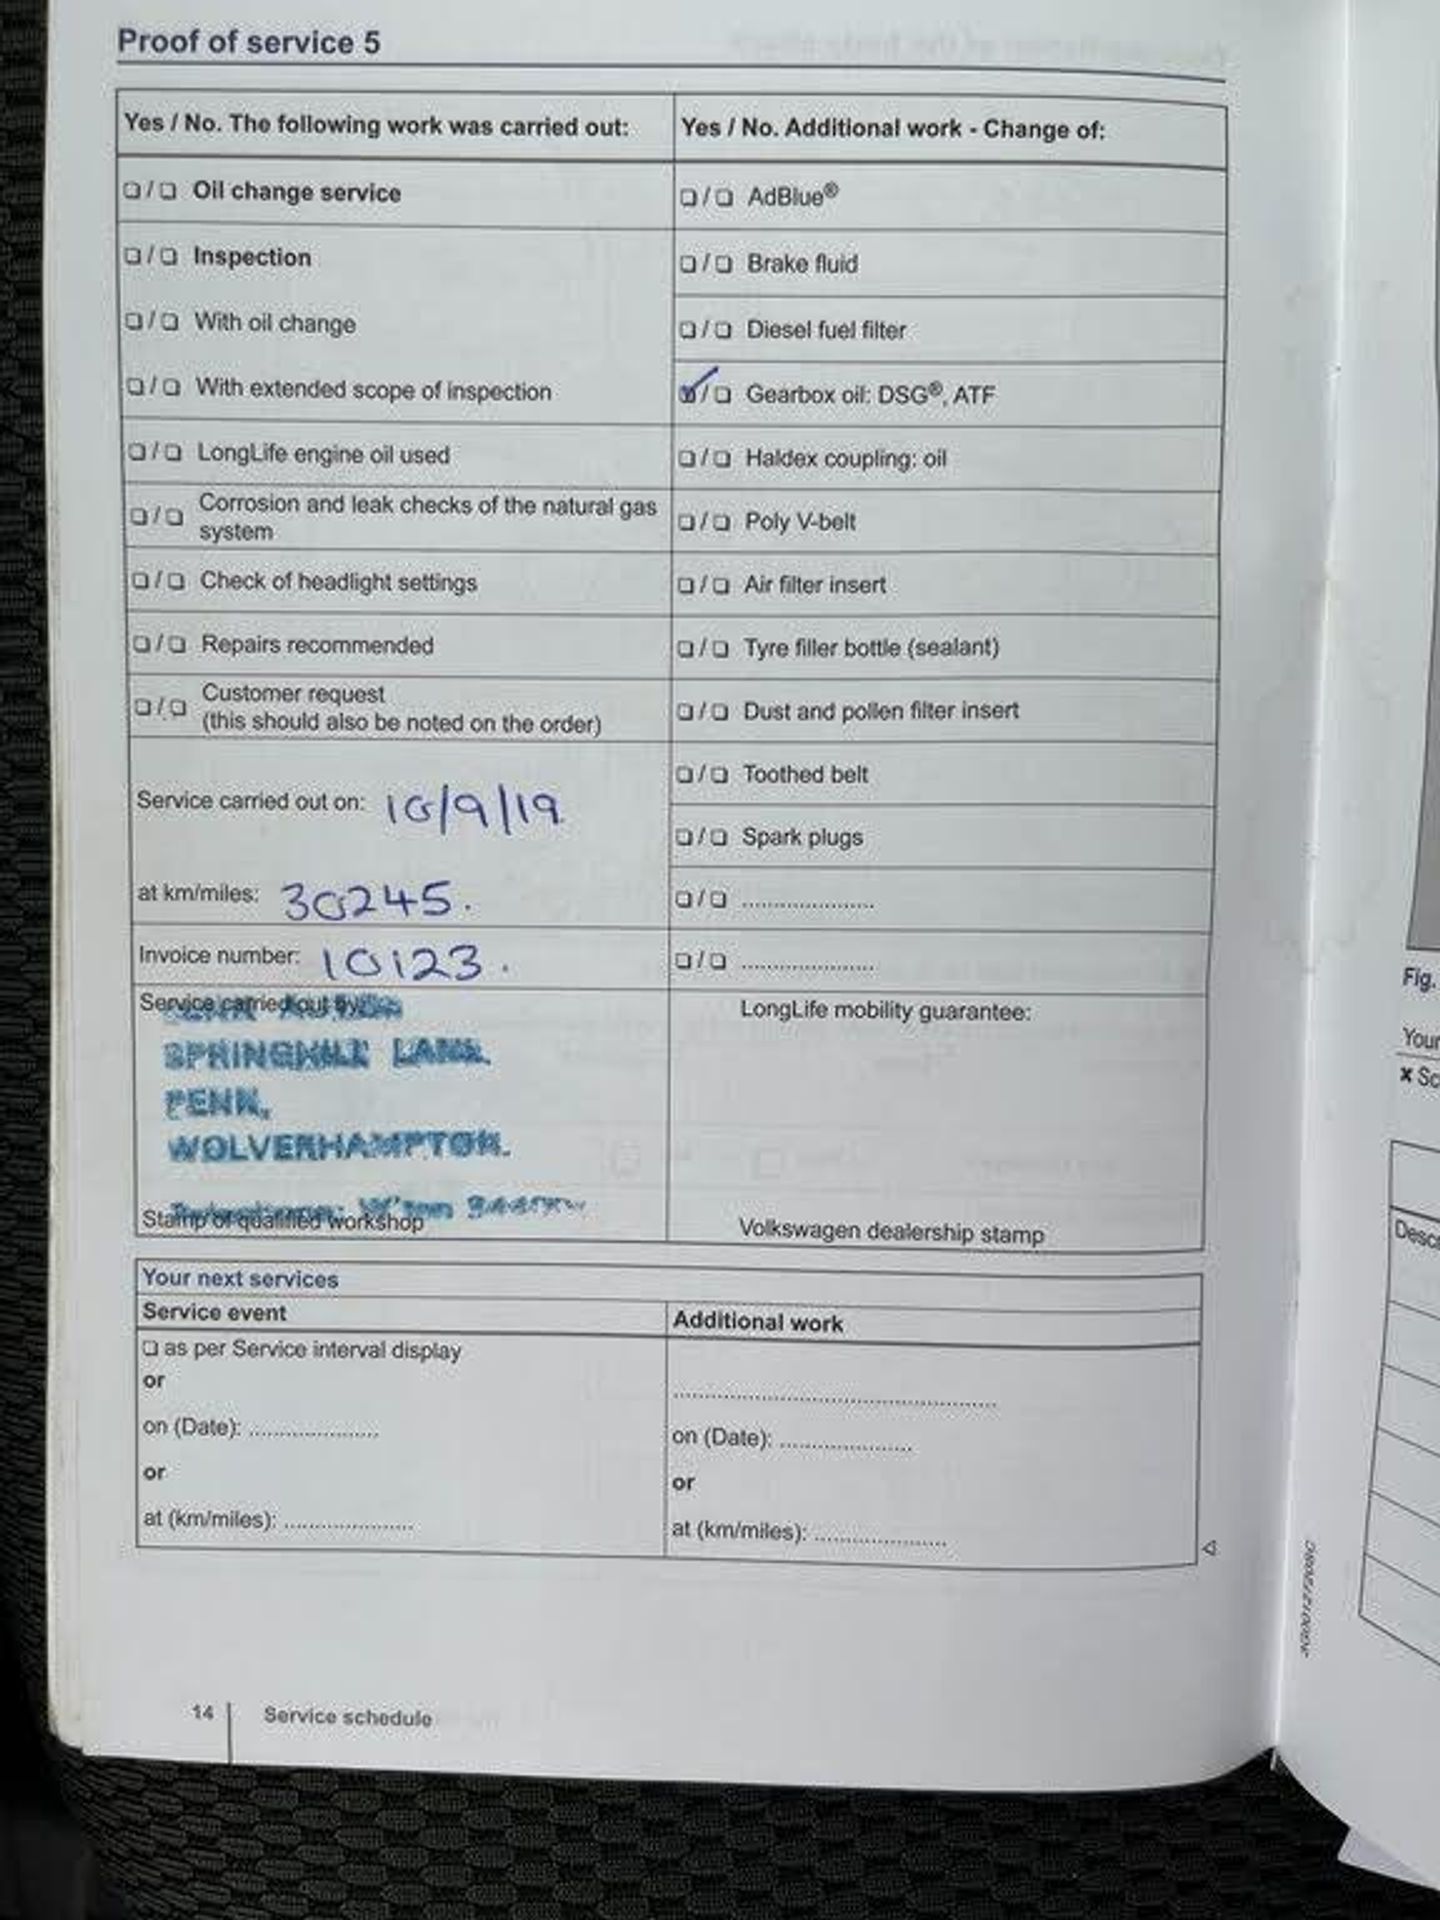 Proof of service 5
Yes / No. The following work was carried out:
Yes / No. Additional work - Change of:
❏ / ❏ Oil change service
❏ / ❏ AdBlue®
❏ / ❏ Inspection
❏ / ❏ Brake fluid
❏ / ❏ With oil change
❏ / ❏ Diesel fuel filter
❏ / ❏ With extended scope of inspection
✓ / ❏ Gearbox oil: DSG®, ATF
❏ / ❏ LongLife engine oil used
❏ / ❏ Haldex coupling: oil
❏ / ❏ Corrosion and leak checks of the natural gas
system
❏ / ❏ Poly V-belt
❏ / ❏ Check of headlight settings
❏ / ❏ Air filter insert
❏ / ❏ Repairs recommended
❏ / ❏ Tyre filler bottle (sealant)
❏ / ❏ Customer request
(this should also be noted on the order)
❏ / ❏ Dust and pollen filter insert
❏ / ❏ Toothed belt
Service carried out on: 10/9/19
❏ / ❏ Spark plugs
at km/miles: 30245.
❏ / ❏ .....................
Invoice number: 10123.
❏ / ❏ .....................
Service carried out by:
SPRINGHILL LANE.
PENN,
WOLVERHAMPTON.
Stamp of qualified workshop
LongLife mobility guarantee:
Volkswagen dealership stamp
Your next services
Service event
Additional work
❏ as per Service interval display
or
on (Date): .....................
or
at (km/miles): .....................
.....................
on (Date): .....................
or
at (km/miles): .....................
14
Service schedule
3G0012720BC
Fig.
Your
✖ Sc
Descr